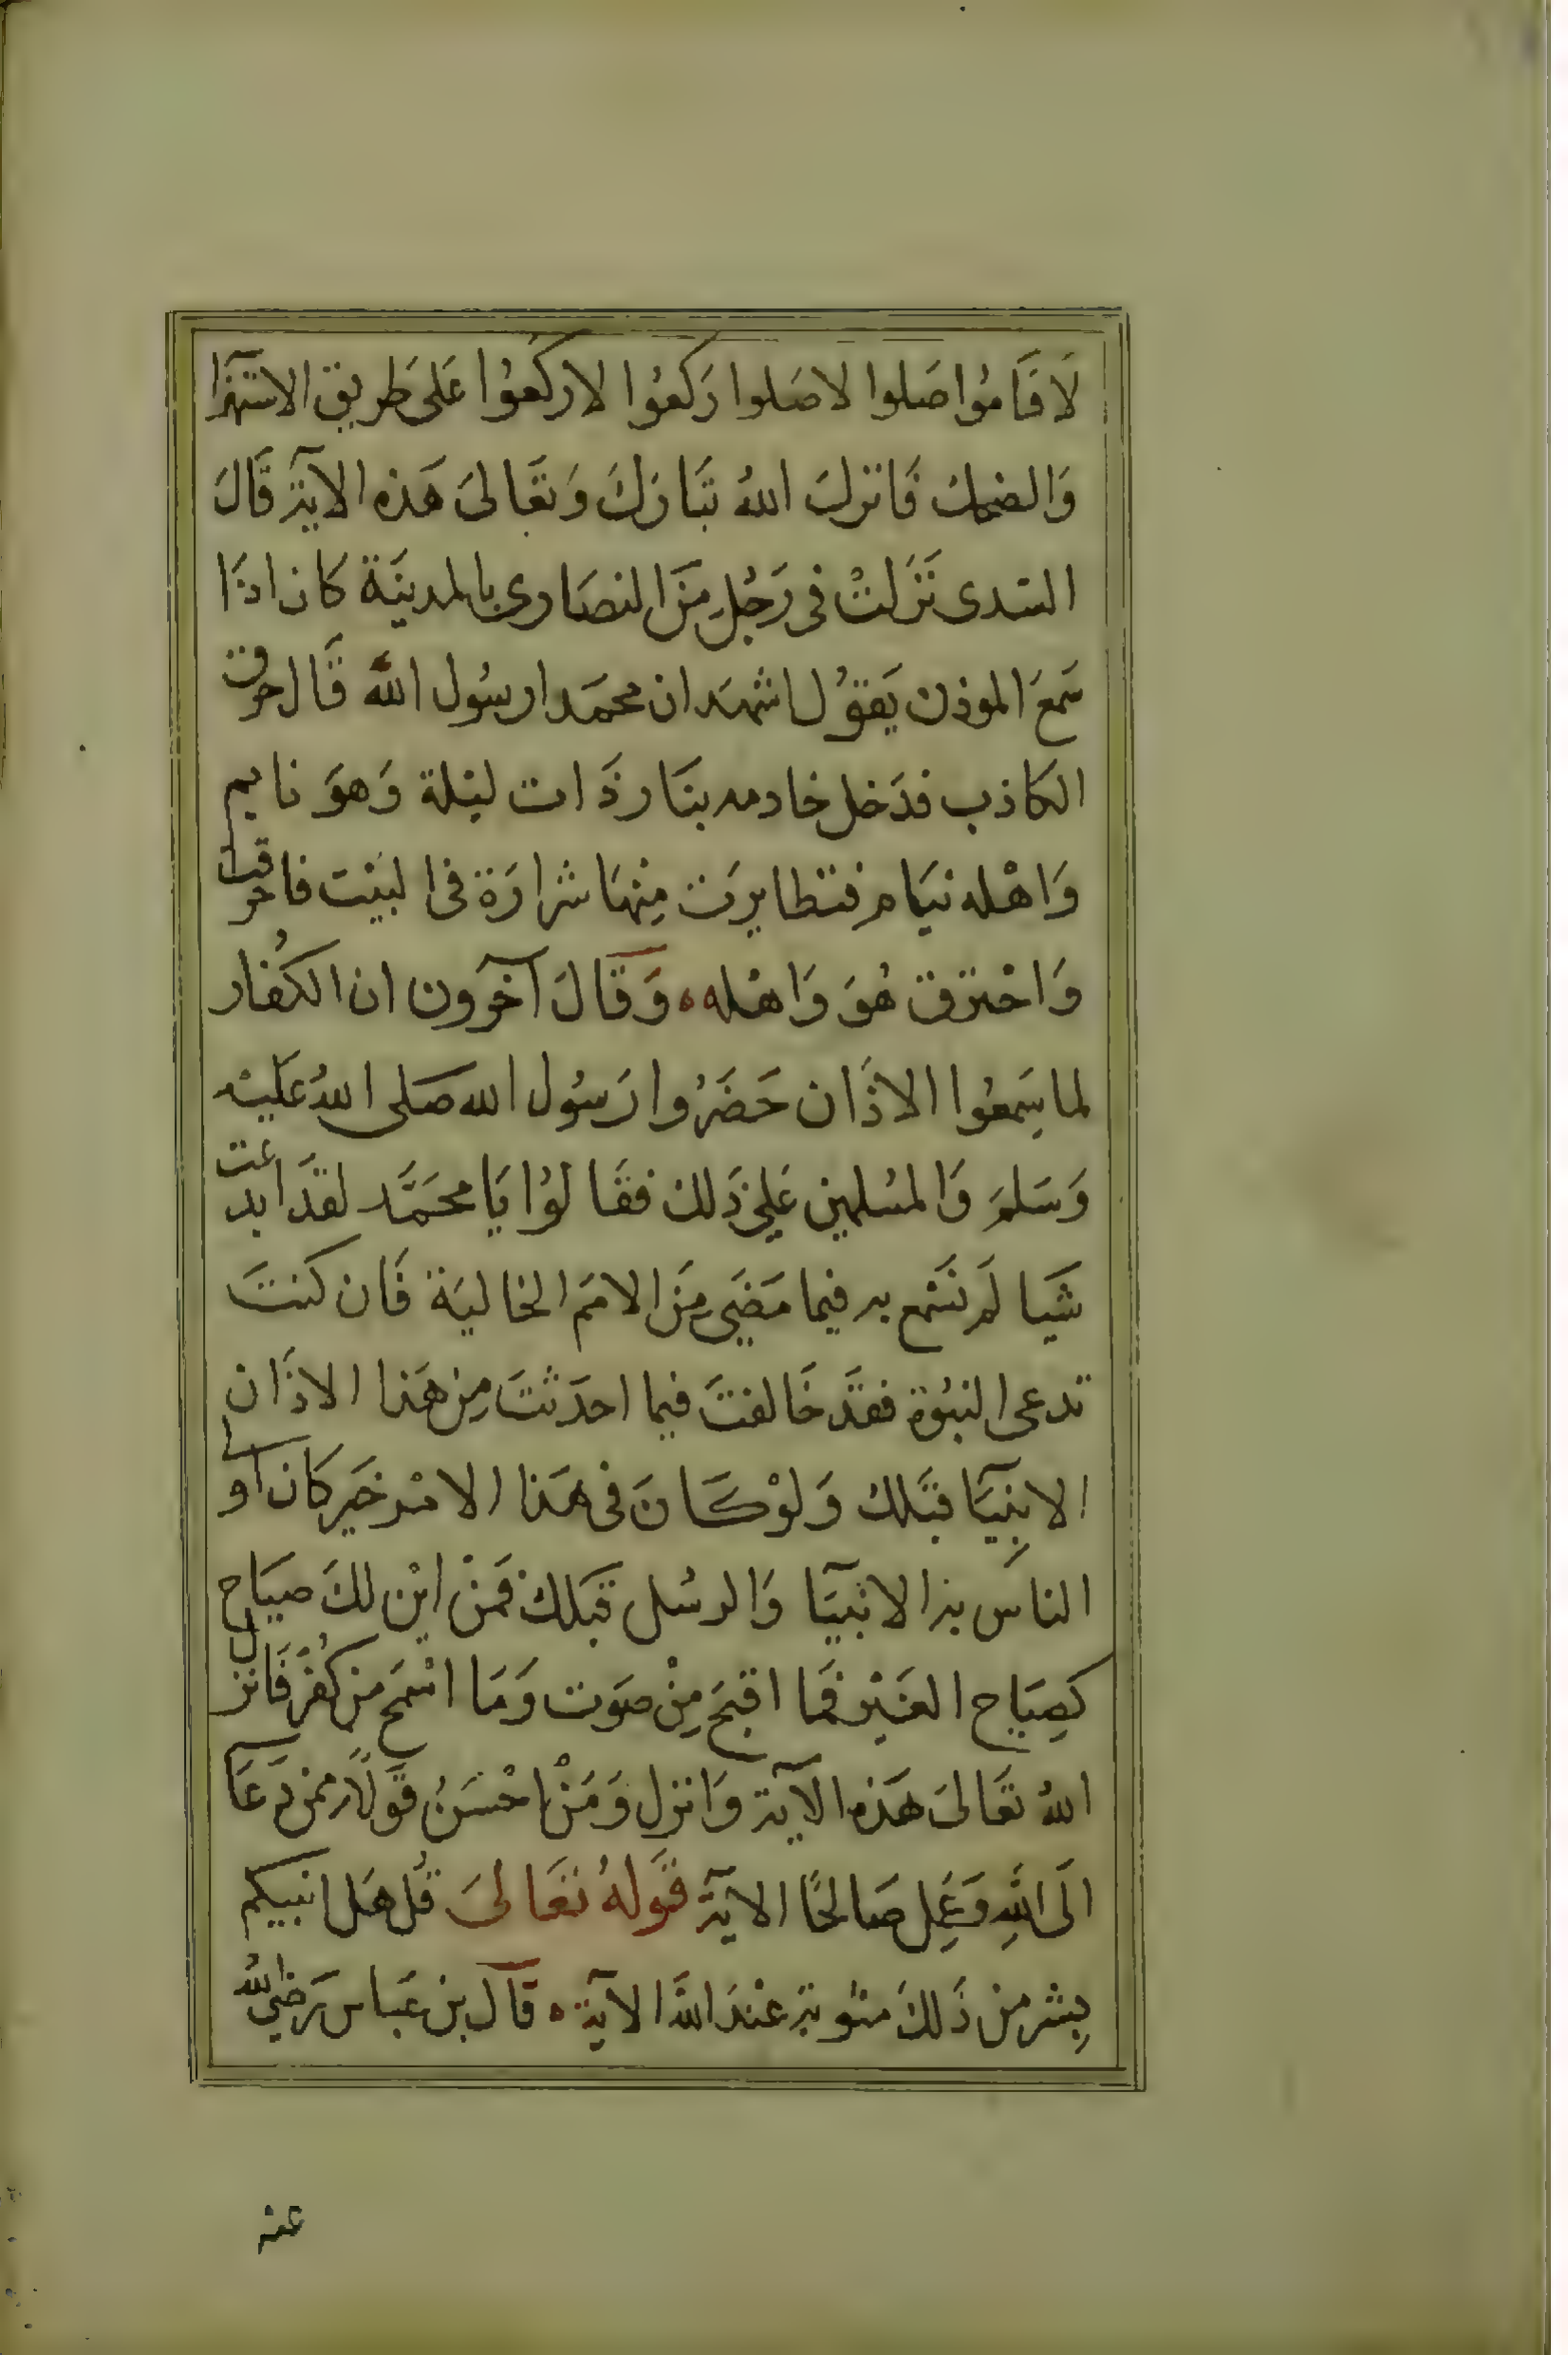 لَا قَامُوا صَلوا لا صَلوا رَكعُوا لا رَكعُوا عَلى طَريق الاستهزآ
وَالضحك فَانزل اللهُ تبَارَكَ وَتعَالىَ هَذه الآية قَالَ
السدى نَزَلتْ فى رَجُلٍ مِنَ النصَارى بالمدينَة كان اذَا
سَمعَ الموذن يَقوُل اشهَد ان محمَدا رسُول الله قَال حرق
الكاذب فدَخل خادمه بنَار ذَات ليْلة وَهوَ نايم
وَاهْله نيَام فتطايرَت مِنْهَا شرارَة فى البَيْت فاحرقت
وَاحْترق هُوَ وَاهْله ه وَقَالَ آخرَون ان الكُفار
لما سَمِعُوا الاذَان حَضَرُوا رَسُول الله صَلى اللهُ عَليْه
وَسَلمَ وَالمسُلمين عَلي ذَلك فقَالوُا يَا محَمَّد لقَد ابدعت
شَيا لَم نسَمع به فيما مَضَى مِنَ الامَم الخاليَة فَان كنتَ
تدعى النبُوة فقَد خَالفتَ فيما احدَثتَ مِن هَذا الاذَان
الانبِيَآ قبَلك وَلوْ كَانَ فى هَذا الامْر خَير كَان اوَلى
الناسَ بذا الانبيَآ وَالرسُل قبَلك فَمنْ اينْ لكَ صيَاح
كَصِيَاح العَيْر فمَا اقبَح مِنْ صوَت وَمَا اسْمَح مِن كُفرً فَانزل
اللهُ تعَالىَ هَذه الآية وَانزل وَمَنْ احْسَنُ قوَلاً ممن دَعَآ
الَى اللَّهِ وَعَمِل صَالحًا الايَة قَولهُ تعَالىَ قُل هَل انبيكم
بِشر من ذَلكَ مثوُبة عنْدَ اللَّه الآية ه قآل بن عَباس رَضيَ الله
عنه